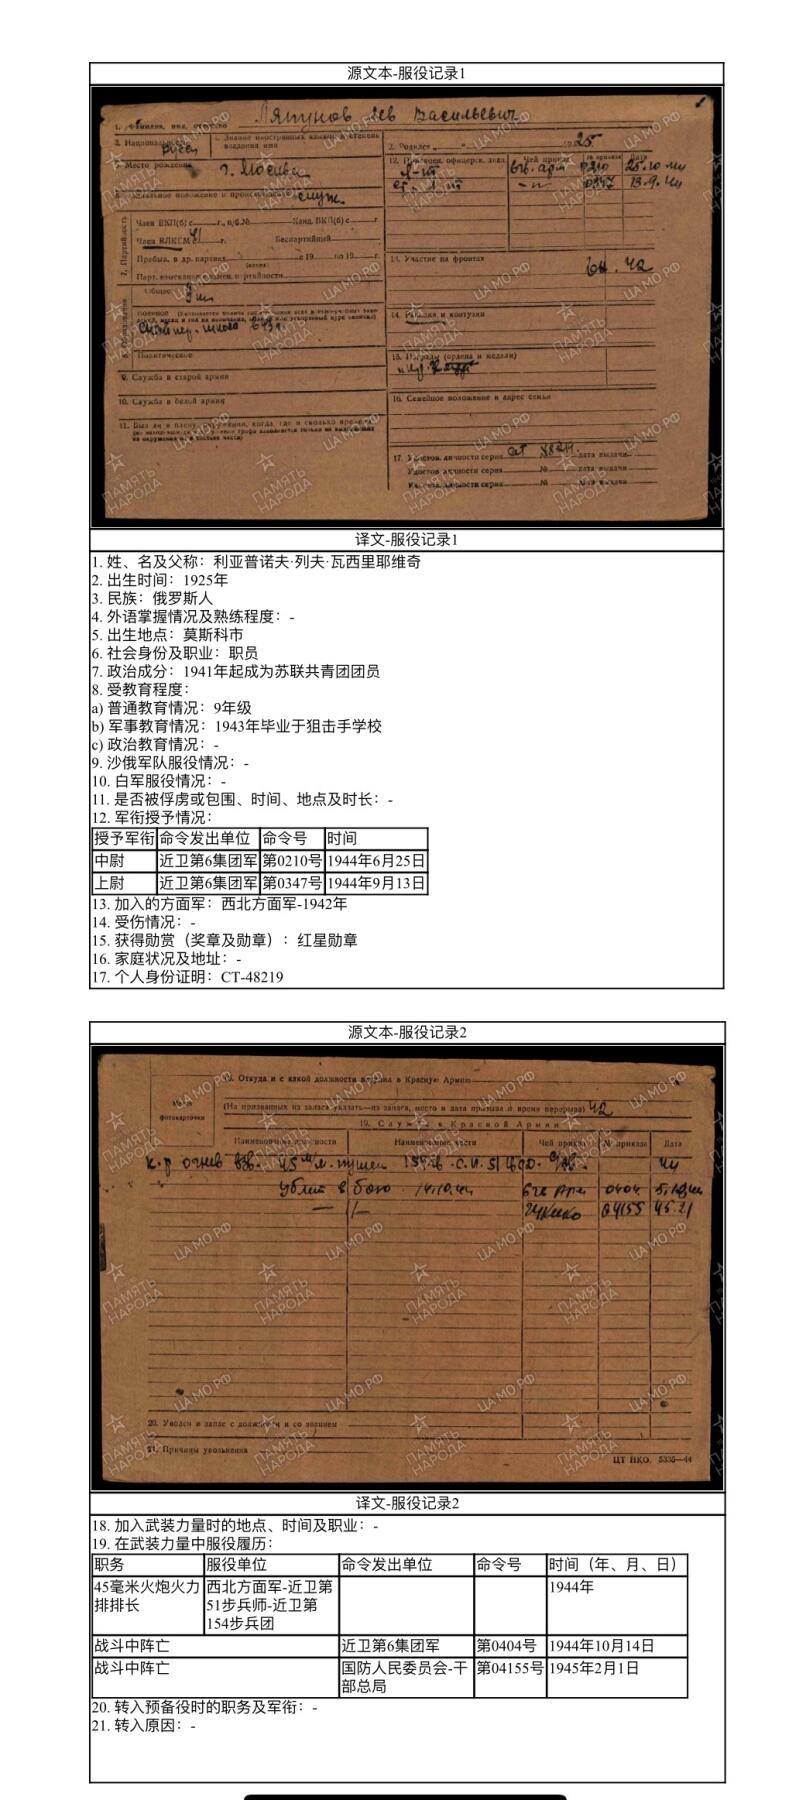 源文本-服役记录1
1. Фамилия, имя, отчество Ляпунов Лев Васильевич
3. Национальность Русс
4. Знание иностранных языков и степень владения ими
2. Родился 1925
5. Место рождения г. Москва
служ.
12. Присвоен. офицерск. звания Чей приказ № приказа Дата
л-нт 6 гв. арм 0210
ст. л-нт -"- 0347 13.9.44
7. Партийность
Член ВКП(б) с г., п/б № Канд. ВКП(б) с г.
Член ВЛКСМ с 41 г. Беспартийный
Пребыв. в др. партиях с 19 по 19 г.
13. Участие на фронтах
42
Общее 9 кл
14. Ранения и контузии
Снайпер. школа в 43 г.
Политическое
15. Награды (ордена и медали)
9. Служба в старой армии
10. Служба в белой армии
16. Семейное положение и адрес семьи
11. Был ли в плену, окружении, когда, где и сколько времени
17. Удостов. личности серия № дата выдачи
Удостов. личности серия № дата выдачи
Удостов. личности серия № дата выдачи
ПАМЯТЬ НАРОДА
ЦАМО.РФ
译文-服役记录1
1. 姓、名及父称：利亚普诺夫·列夫·瓦西里耶维奇
2. 出生时间：1925年
3. 民族：俄罗斯人
4. 外语掌握情况及熟练程度：-
5. 出生地点：莫斯科市
6. 社会身份及职业：职员
7. 政治成分：1941年起成为苏联共青团团员
8. 受教育程度：
a) 普通教育情况：9年级
b) 军事教育情况：1943年毕业于狙击手学校
c) 政治教育情况：-
9. 沙俄军队服役情况：-
10. 白军服役情况：-
11. 是否被俘虏或包围、时间、地点及时长：-
12. 军衔授予情况：
授予军衔 命令发出单位 命令号 时间
中尉 近卫第6集团军 第0210号 1944年6月25日
上尉 近卫第6集团军 第0347号 1944年9月13日
13. 加入的方面军：西北方面军-1942年
14. 受伤情况：-
15. 获得勋赏（奖章及勋章）：红星勋章
16. 家庭状况及地址：-
17. 个人身份证明：CT-48219
源文本-服役记录2
18. Откуда и с какой должности вступил в Красную Армию
Место фотокарточки
(На призванных из запаса указать—из запаса, место и дата призыва и время перерыва) 42
19. Служба в Красной Армии
Наименование должности Наименование части Чей приказ № приказа Дата
45 м/м. пушек 154 гв. с.п. 51 гв. с.д. 44
убит в бою 14.10.44 6 гв арм 0404
04155
20. Уволен в запас с должности и со званием
21. Причины увольнения
ЦТ НКО. 5335—44
ПАМЯТЬ НАРОДА
ЦАМО.РФ
译文-服役记录2
18. 加入武装力量时的地点、时间及职业：-
19. 在武装力量中服役履历：
职务 服役单位 命令发出单位 命令号 时间（年、月、日）
45毫米火炮火力 西北方面军-近卫第 1944年
排排长 51步兵师-近卫第
154步兵团
战斗中阵亡 近卫第6集团军 第0404号 1944年10月14日
战斗中阵亡 国防人民委员会-干 第04155号 1945年2月1日
部总局
20. 转入预备役时的职务及军衔：-
21. 转入原因：-